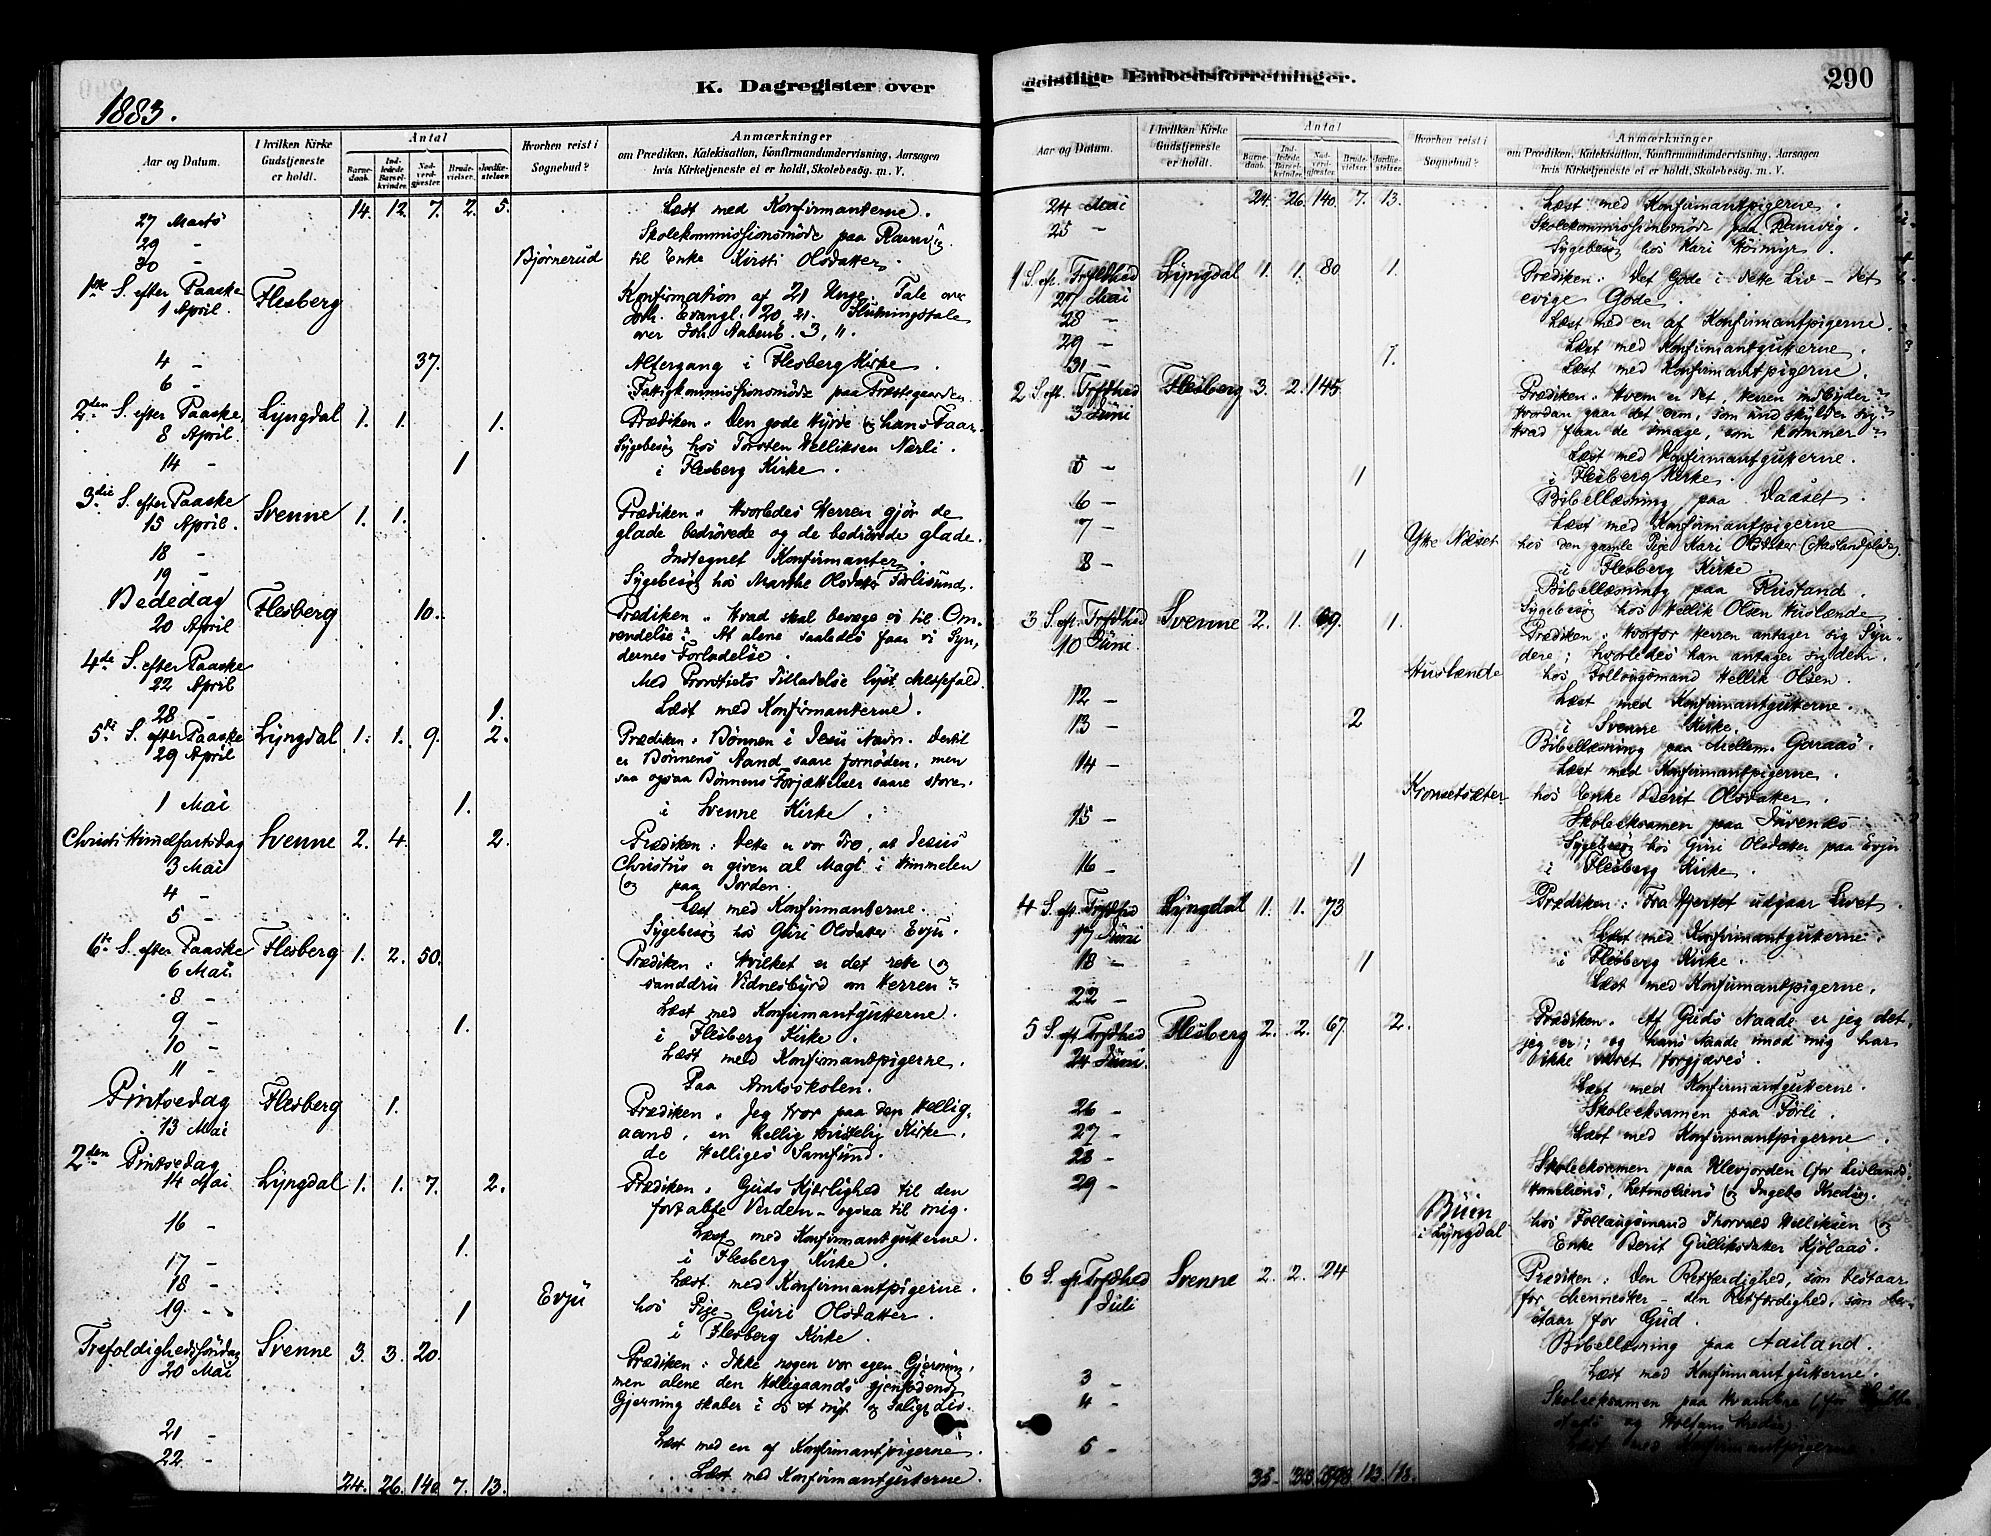 K. Dagregister over geistlige Embedsforretninger.
290
1883.
Aar og Datum.
I hvilken Kirke Gudstjeneste er holdt.
Antal
Barnedaab.
Indledede Barselkvinder.
Nadverdgjæster.
Brudevielser.
Jordfæstelser.
Hvorhen reist i Sognebud?
Anmærkninger
om Prædiken, Katekisation, Konfirmandundervisning, Aarsagen
hvis Kirketjeneste ei er holdt, Skolebesøg. m. V.
14. 12. 7. 2. 5.
27 Marts Læst med Konfirmanterne.
29 - Skolekommissionsmöde paa Ramvig
30 - Bjørnerud til Enke Kirsti Olsdatter.
1ste S. efter Paaske Flesberg Konfirmation af 21 Unge. Tale over
1 April. Joh. Evangl. 20, 21. Slutningstale
over Joh. Aabenb. 3, 11.
4 - 37. Altergang i Flesberg Kirke.
6 - Fattigkommissionsmöde paa Præstegaarden
2den S. efter Paaske, Lyngdal 1. 1. 1. Prædiken: Den gode Hyrde og hans Faar.
8 April. Sygebesög hos Torsten Helliksen Nærli.
14 - 1 i Flesberg Kirke.
3die S. efter Paaske Svenne 1. 1. Prædiken: Hvorledes Herren gjör de
15 April. glade bedrövede og de bedrövede glade.
18 - Indtegnet Konfirmanter.
19 - Sygebesög hos Marthe Olsdatter Förlisund.
Bededag Flesberg 10. Prædiken: Hvad skal bevæge os til Om-
20 April vendelse: At alene saaledes faar vi Syn-
dernes Forladelse.
4de S. efter Paaske
22 April Med Provstiets Tilladelse lyst Messefald.
28 - 1. Læst med Konfirmanterne.
5te S. efter Paaske Lyngdal 1. 1. 9. 2. Prædiken: Bønnen i Jesu Navn. Dertil
29 April er Bønnens Aand saare fornöden, men
saa ogsaa Bønnens Forjættelser saare store.
1 Mai 1. i Svenne Kirke.
Christi Himmelfartsdag Svenne 2. 4. 2. Prædiken: Dette er vor Tro, at Jesus
3 Mai Christus er given al Magt i Himmelen
4 - og paa Jorden.
5 - Læst med Konfirmanterne.
Sygebesög hos Guri Olsdatter Evju.
6te S. efter Paaske Flesberg 1. 2. 50. Prædiken: Hvilket er det rette og
6 Mai. sanddru Vidnesbyrd om Herren?
8 - Læst med Konfirmantgutterne.
9 - 1. i Flesberg Kirke.
10 - Læst med Konfirmantpigerne.
11 - Paa Amtsskolen.
Pintsedag Flesberg 1. Prædiken: Jeg tror paa den Hellig-
13 Mai aand, en hellig kristelig Kirke,
de Helliges Samfund.
2den Pintsedag
14 Mai Lyngdal 1. 1. 7. 2. Prædiken: Guds Kjærlighed til den
fortabte Verden - ogsaa til mig.
16 - Læst med Konfirmantgutterne.
17 - 1. i Flesberg Kirke.
18 - Læst med Konfirmantpigerne.
19 - Evju 1 hos Pige Guri Olsdatter
i Flesberg Kirke.
Trefoldighedssöndag Svenne 3. 3. 20. Prædiken: Ikke nogen vor egen Gjerning,
20 Mai men alene den Helligaands gjenfödende
Gjerning skaber i os et nyt og saligt Liv.
21 - Læst med en af Konfirmantpigerne.
22 - Læst med Konfirmantgutterne.
24. 26. 140. 7. 13.
Aar og Datum.
I hvilken Kirke Gudstjeneste er holdt.
Antal
Barnedaab.
Indledede Barselkvinder.
Nadverdgjæster.
Brudevielser.
Jordfæstelser.
Hvorhen reist i Sognebud?
Anmærkninger
om Prædiken, Katekisation, Konfirmandundervisning, Aarsagen
hvis Kirketjeneste ei er holdt, Skolebesøg. m. V.
24. 26. 140. 7. 13.
24 Mai Læst med Konfirmantpigerne.
25 - Skolekommissionsmöde paa Ramvig.
Sygebesög hos Kari
1 S. eft. Trefdhed Lyngdal 1. 1. 80. 1. Prædiken: Det Gode i dette Liv - det
27 Mai evige Gode.
28 - Læst med en af Konfirmantpigerne.
29 - Læst med Konfirmantgutterne.
31 - 1. Læst med Konfirmantpigerne.
2 S. eft. Trefdhed Flesberg 3. 2. 145. Prædiken: Hvem er det, Herren indbyder?
3 Juni Hvordan gaar det dem, som undskylder sig?
Hvad faar de smage, som kommer?
5 - Læst med Konfirmantgutterne.
1 i Flesberg Kirke.
6 - Bibellæsning paa Daaset.
7 - Læst med Konfirmantpigerne
Ytre Næset hos den gamle Pige Kari Olsdatter
8 - 1 i Flesberg Kirke.
Bibellæsning paa Rustand.
Sygebesög hos Hellik Olsen Huslænde.
3 S. eft. Trefdhed Svenne 2. 1. 69. 1. Prædiken: Hvorfor Herren antager sig Syn-
10 Juni. dere; hvorledes han antager sig dem.
Huslænde hos Follougsmand Hellik Olsen.
12 - Læst med Konfirmantgutterne.
13 - 2 i Svenne Kirke.
Bibellæsning paa Mellem Garaas.
14 - Læst med Konfirmantpigerne.
Kronsetsæter hos Enke Berit Olsdatter.
15 - Skoleeksamen paa Juvenes
Sygebesög hos Guri Olsdatter paa Evju
16 - 1 i Flesberg Kirke.
4 S. eft. Trefdhed Lyngdal 1. 1. 73 Prædiken: Fra Hjertet udgaar Livet.
17 Juni Læst med Konfirmantgutterne.
18 - 1 i Flesberg Kirke.
22 - Læst med Konfirmantpigerne.
5 S. eft Trefdhed Flesberg 2. 2. 67. 2. Prædiken: Af Guds Naade er jeg det,
24 Juni. jeg er; og hans Naade imod mig har
ikke været forgjæves.
Læst med Konfirmantgutterne.
26 - Skoleeksamen paa Förli.
27 - Læst med Konfirmantpigerne.
28 - Skoleeksamen paa Klevjorden (for
29 - og Ingebo Kreds).
Büen i Lyngdal hos Follaugsmand Thorvald Helliksen og
Enke Berit Gulliksdatter Kjölaas.
6 S. eft. Trefdhed Svenne 2. 2. 24 Prædiken: Den Retfærdighed, som bestaar
1 Juli for Mennesker - den Retfærdighed, som be-
staar for Gud.
Bibellæsning paa Aasland.
3 - Læst med Konfirmantgutterne.
4 - Skoleeksamen paa (for
5 - Læst med Konfirmantpigerne.
35. 13. 18.